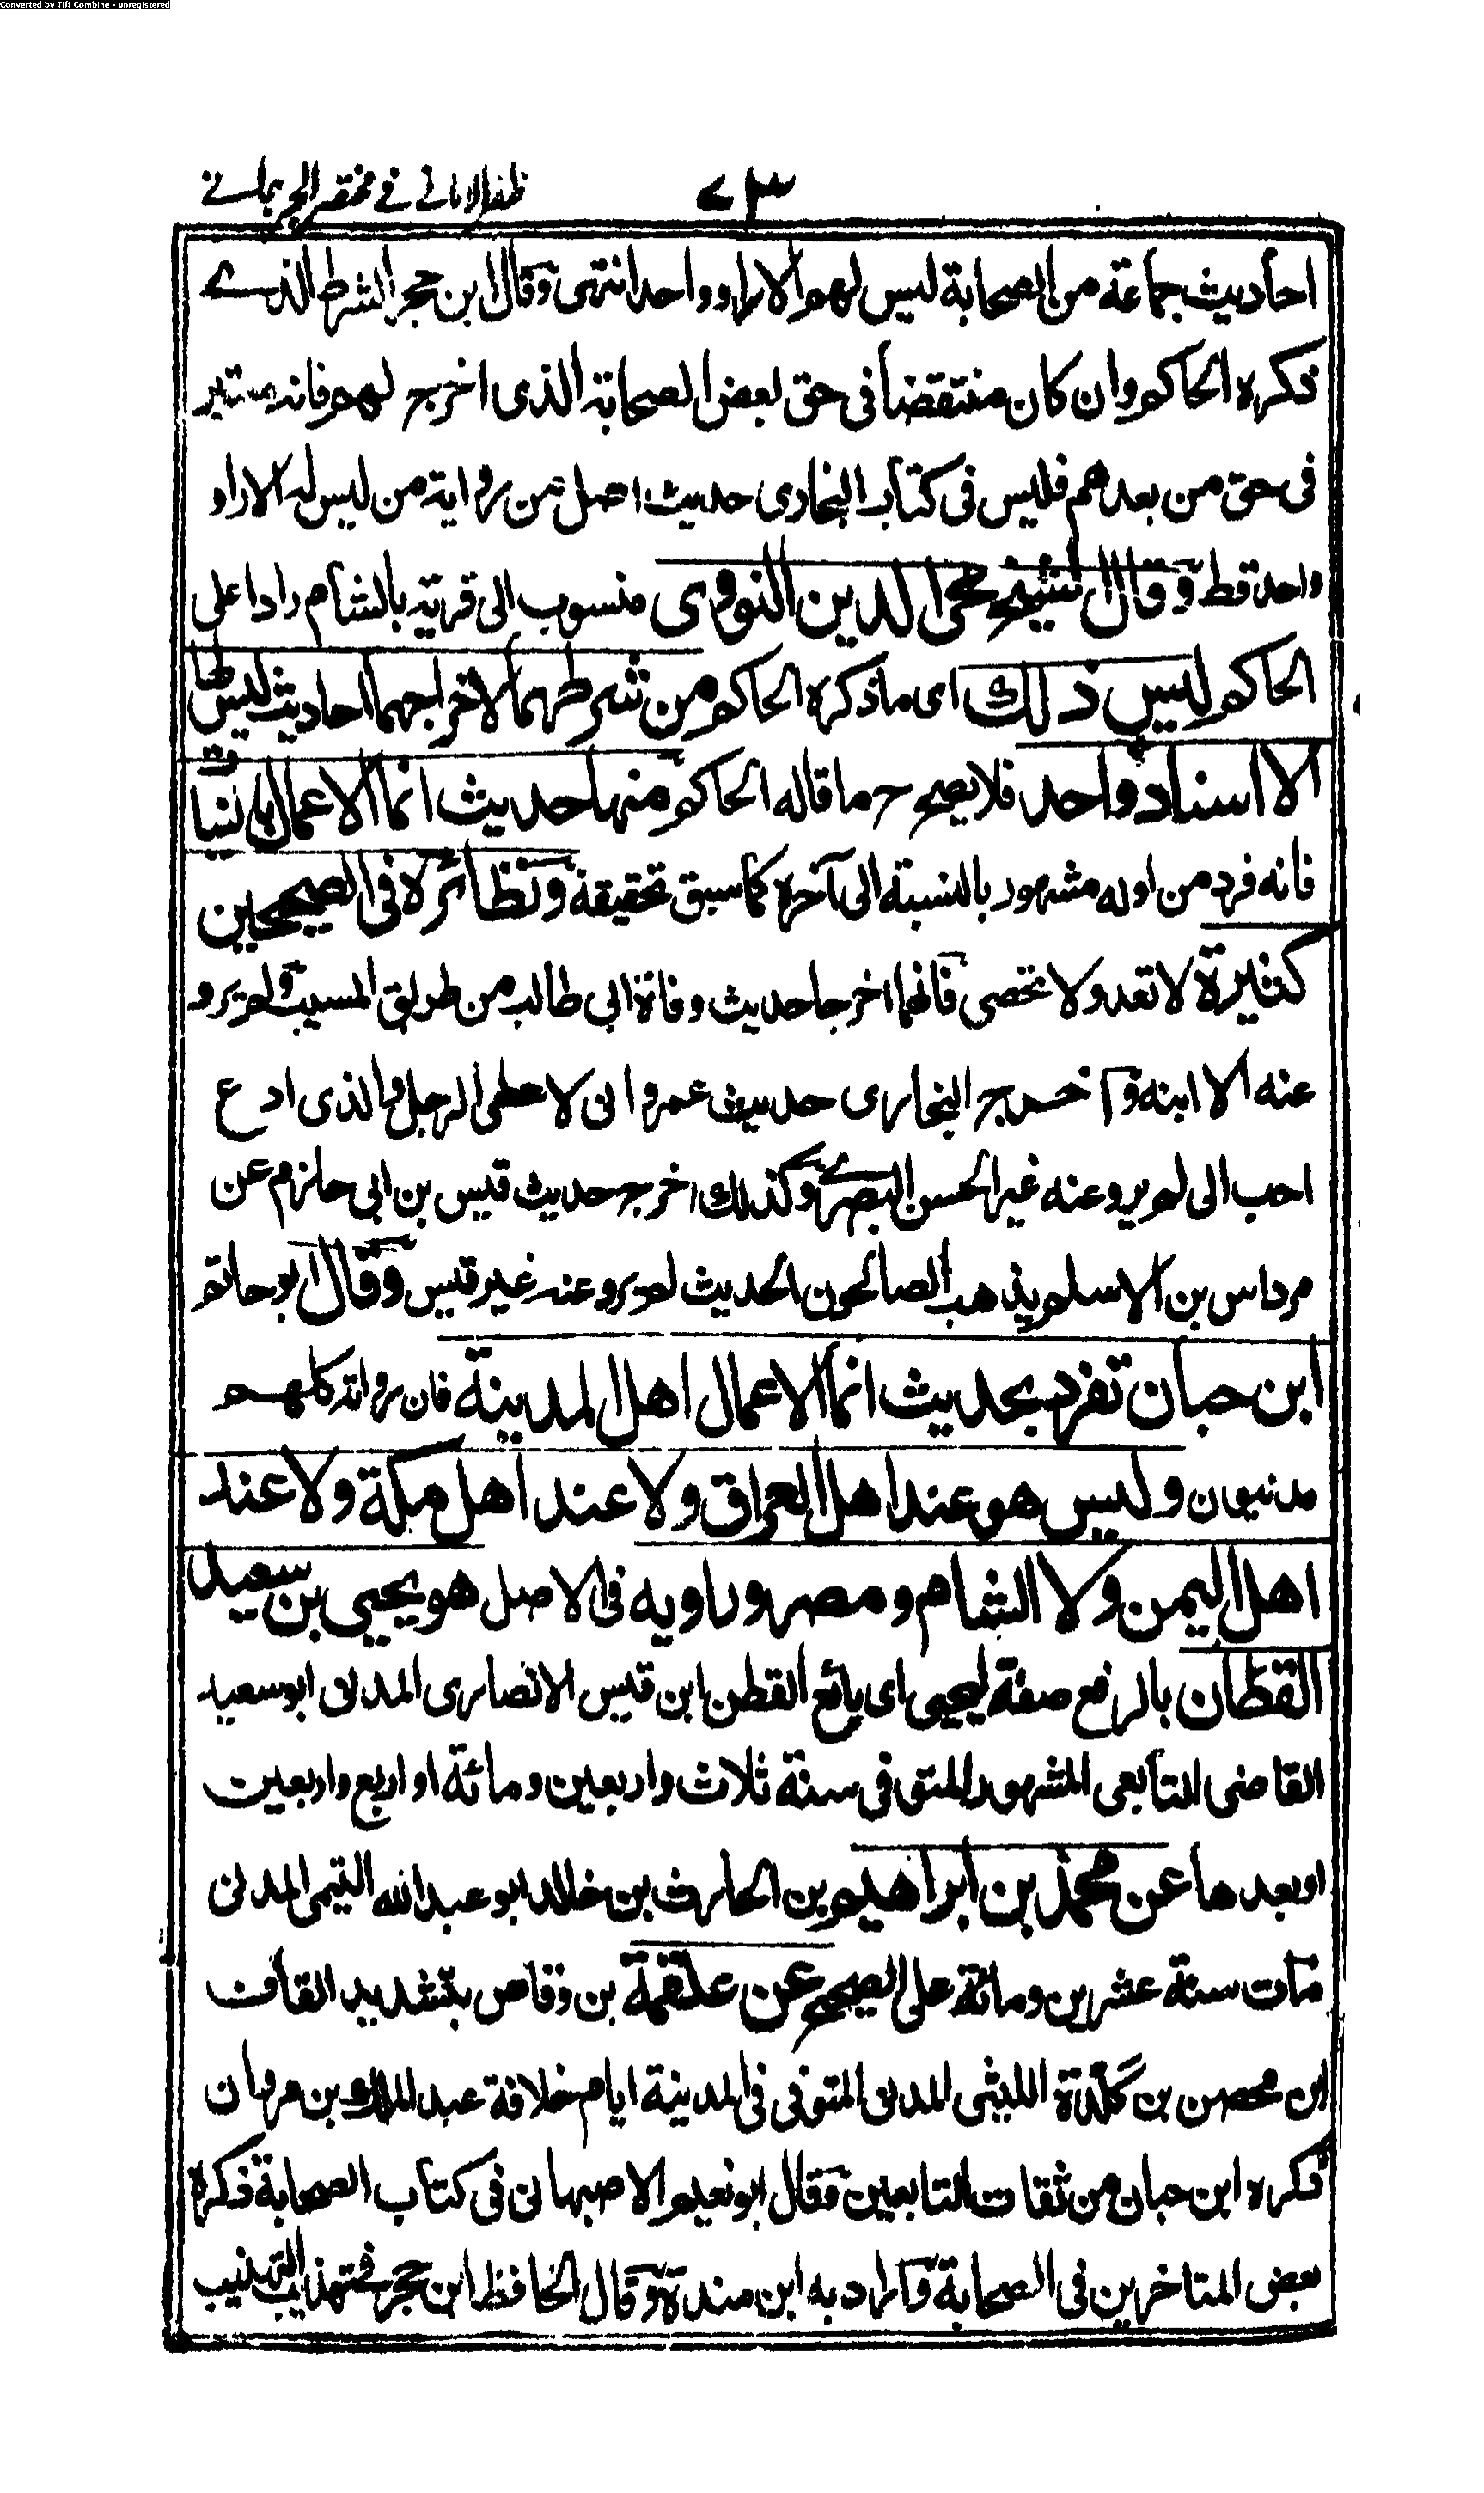 Converted by Tiff Combine - unregistered
ظفر الاماني في مختصر الجرجاني
٧٣
احاديث جماعة من الصحابة ليس لهم الا راو واحد انتهى وقال ابن حجر الشرط الذي
ذكره الحاكم وان كان منتقضا في حق بعض الصحابة الذى اخرج لهم فانه معتبر
فى حق من بعدهم فليس فى كتاب البخارى حديث اصل من رواية من ليس له الا راو
واحد قط وقال الشيخ محى الدين النووى منسوب الى قرية بالشام رادا على
الحاكم ليس ذلك اى ما ذكره الحاكم من شرطهما لاخراجهما احاديث ليس لها
الا اسناد واحد فلا يصح ح ما قاله الحاكم منها حديث انما الاعمال بالنيات
فانه فرد من اوله مشهور بالنسبة الى آخره كما سبق تحقيقه ونظائره فى الصحيحين
كثيرة لا تعد ولا تحصى فانهما اخرجا حديث وفاة ابي طالب من طريق المسيب ولم يرو
عنه الا ابنه وآخرج البخارى حديث عمرو انى لاعطى الرجل والذى ادع
احب الى لم يرو عنه غير الحسن البصرى وكذلك اخرج حديث قيس بن ابى حازم عن
مرداس بن الاسلم يذهب الصالحون الحديث لم يرو عنه غير قيس وقال ابو حاتم
ابن حبان تفرد بحديث انما الاعمال اهل المدينة فان رواته كلهم
مدنيون وليس هو عند اهل العراق ولا عند اهل مكة ولا عند
اهل اليمن ولا الشام ومصر وراويه فى الاصل هو يحيى بن سعيد
القطان بالرفع صفة ليحيى اى بائع القطن ابن قيس الانصارى المدنى ابو سعيد
القاضى التابعى المشهور المتوفى سنة ثلاث واربعين ومائة او اربع واربعين
او بعدها عن محمد بن ابراهيم بن الحارث بن خالد ابو عبد الله التيمى المدنى
مات سنة عشرين ومائة على الصحيح عن علقمة بن وقاص بتشديد القاف
ابن محصن بن كلدة الليثى المدنى المتوفى فى المدينة ايام خلافة عبد الملك بن مروان
ذكره ابن حبان من ثقات التابعين وقال ابو نعيم الاصبهانى فى كتاب الصحابة ذكره
بعض المتاخرين فى الصحابة واراد به ابن مندة وقال الحافظ ابن حجر فى تهذيب التهذيب